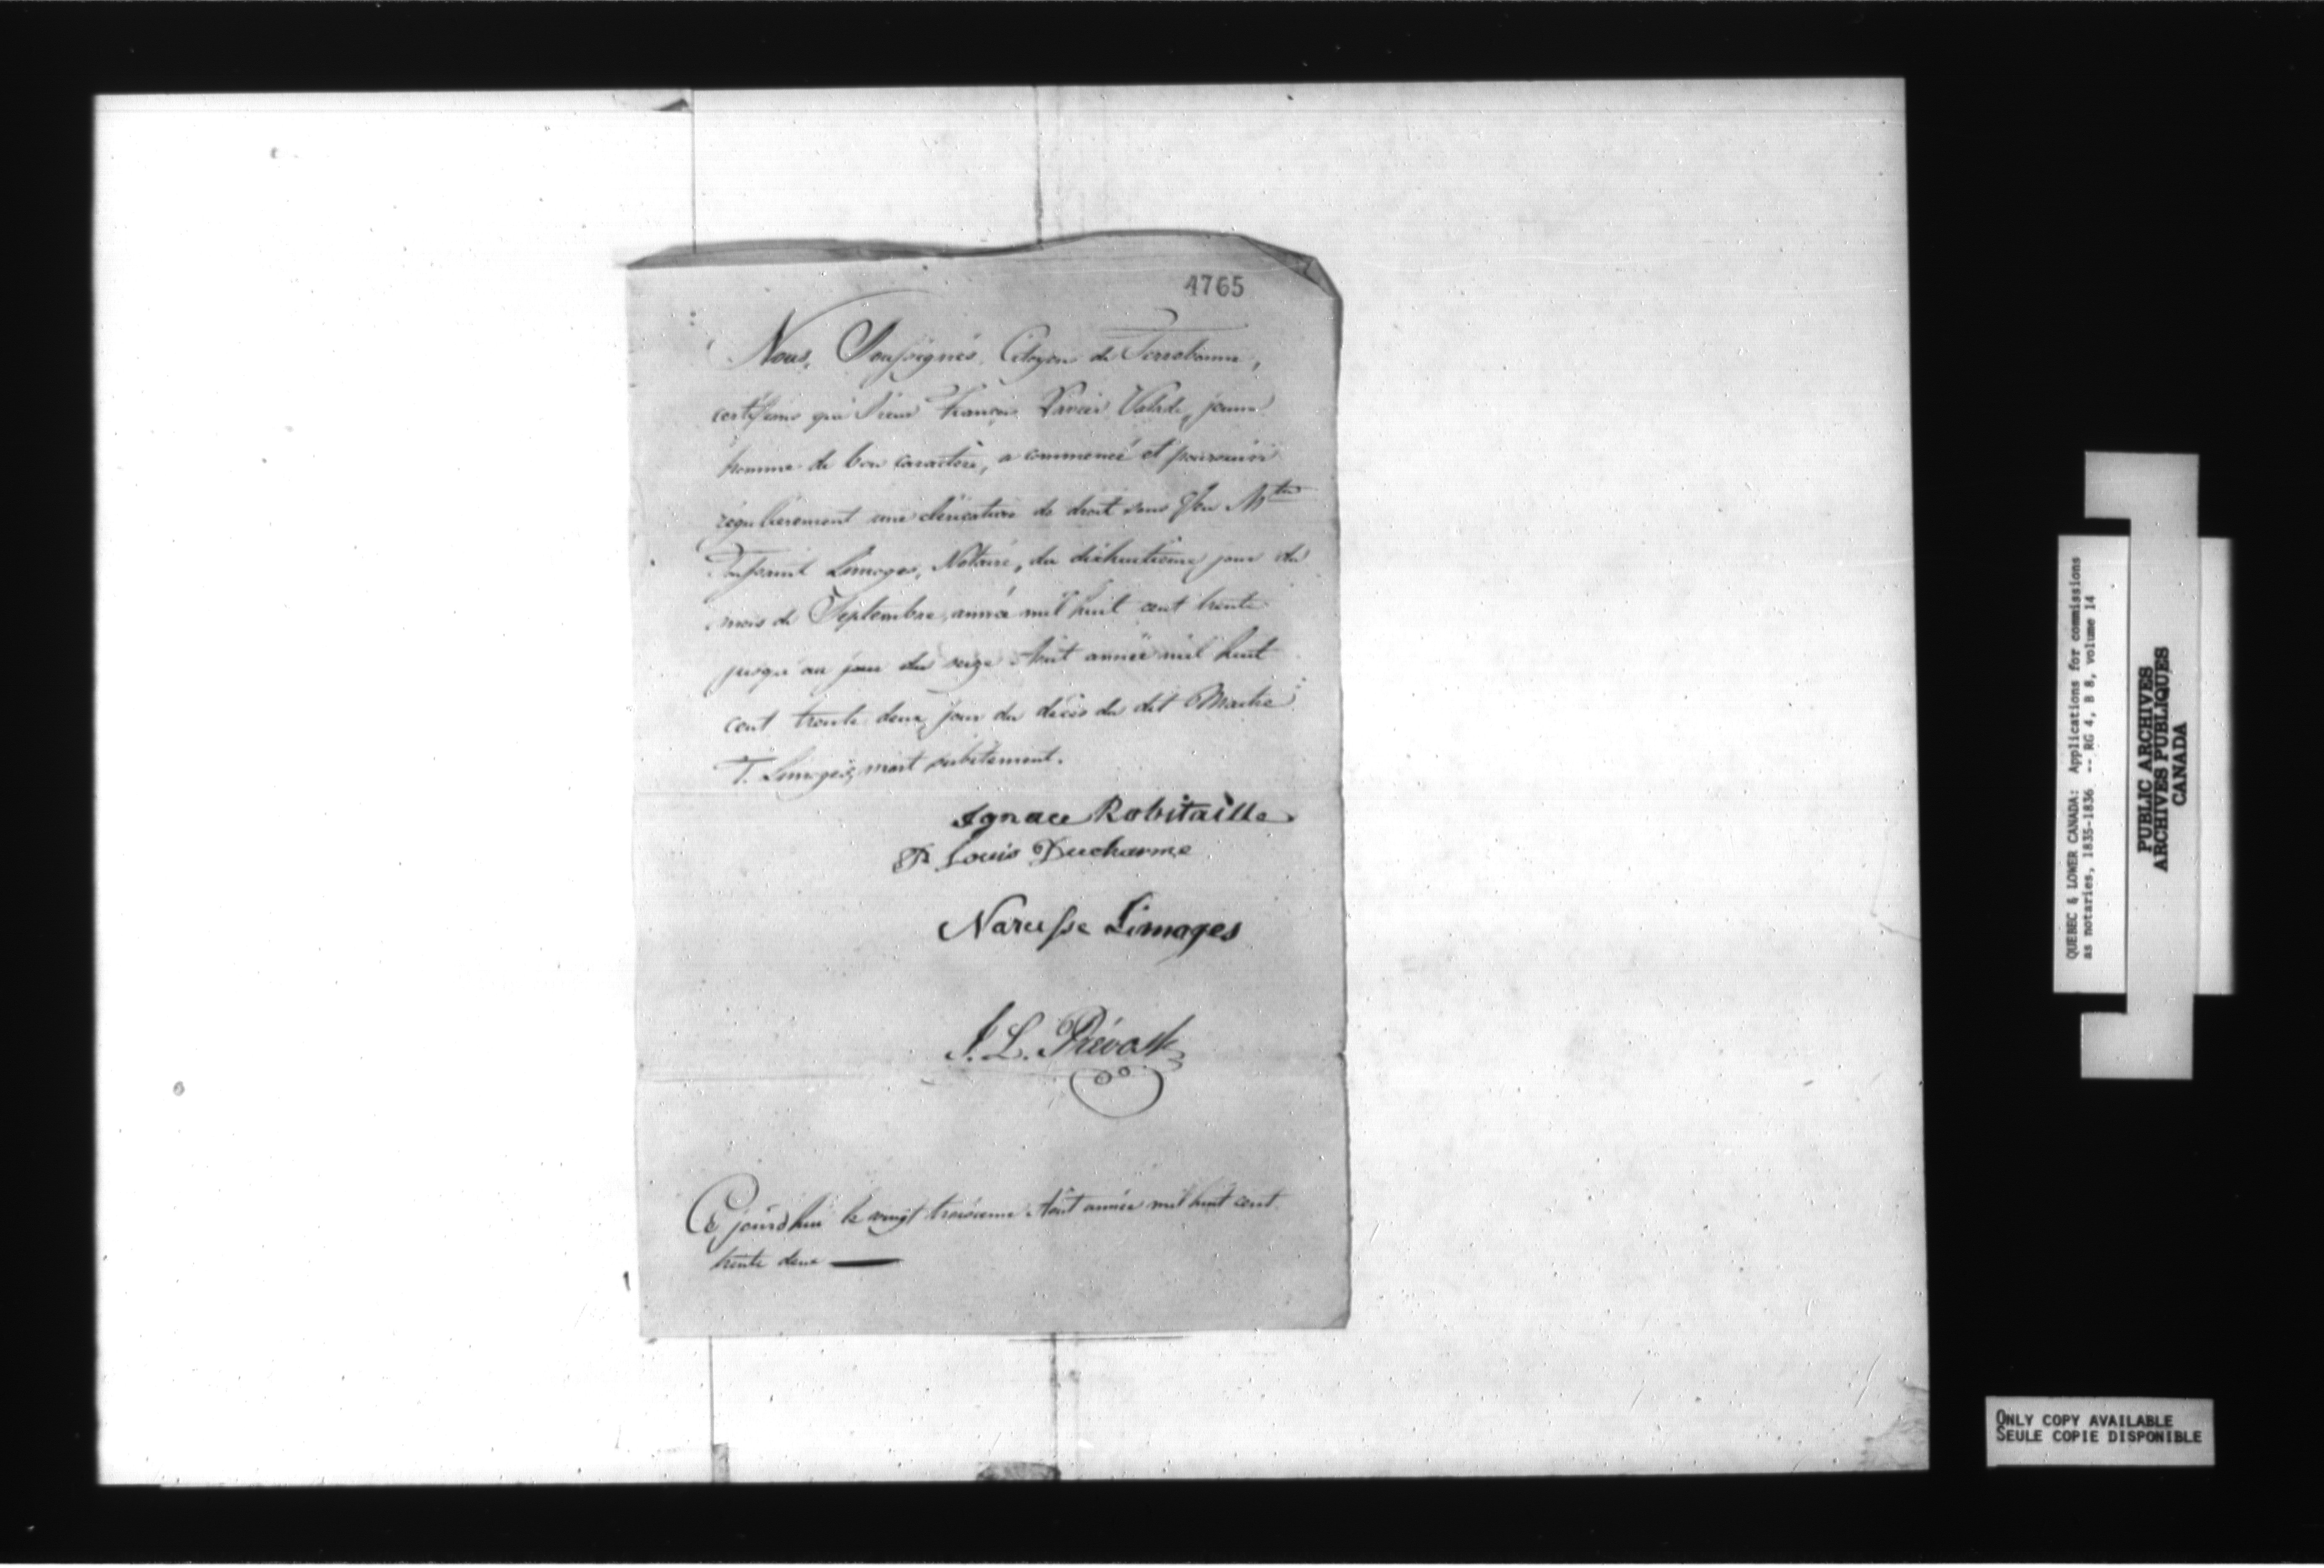 4765
Nous, Soussignés, Citoyens de Terrebonne,
certifions que Sieur François Xavier Valade, jeune
homme de bon caractère, a commencé et poursuivi
régulièrement une cléricature de droit sous feu Mtre
Toussaint Limoges, Notaire, du dixhuitième jour du
mois de Septembre, année mil huit cent trente
jusqu'au jour du seize Août année mil huit
cent trente deux, jour du décès du dit Maitre
T. Limoges, mort subitement.
Ignace Robitaille
Louis Ducharme
Narcisse Limoges
J. L. Prévost
Ce jourd'hui le vingt troisieme Août année mil huit cent
trente deux
QUEBEC & LOWER CANADA: Applications for commissions
as notaries, 1835-1836 -- RG 4, B 8, volume 14
PUBLIC ARCHIVES
ARCHIVES PUBLIQUES
CANADA
ONLY COPY AVAILABLE
SEULE COPIE DISPONIBLE